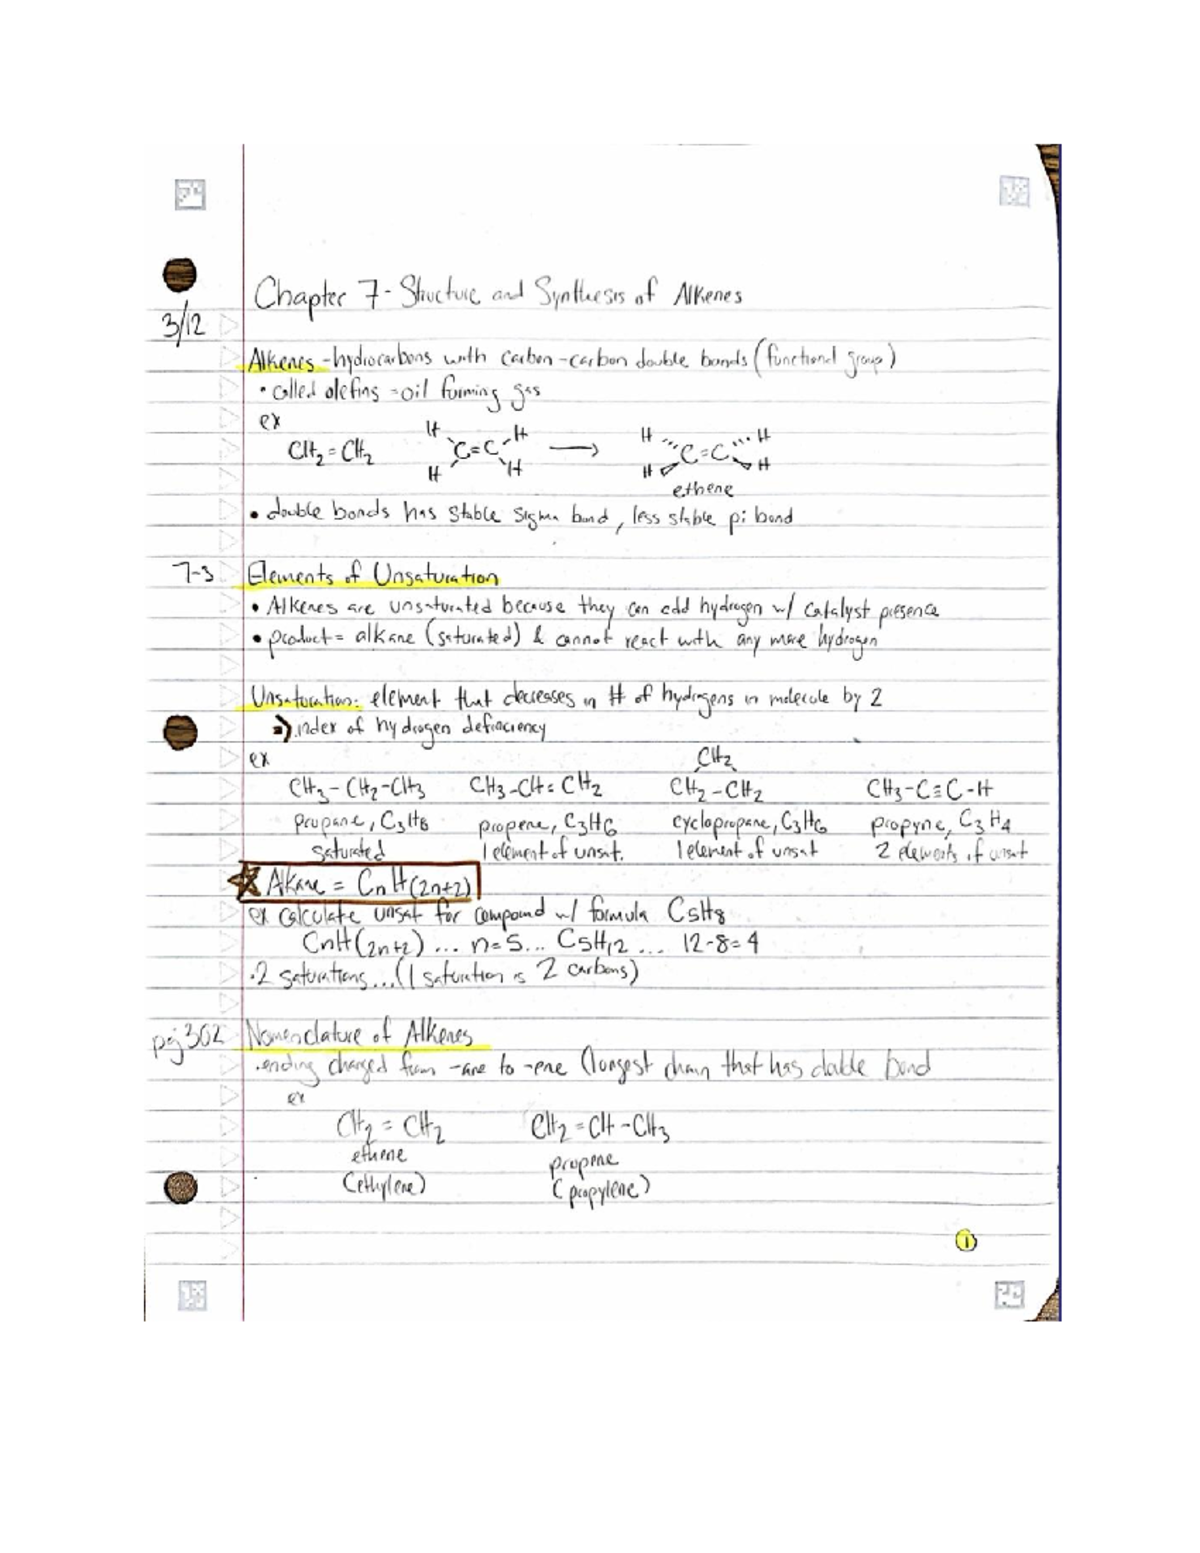 Chapter 7 - Structure and Synthesis of Alkenes
3/12
Alkenes - hydrocarbons with carbon-carbon double bonds (functional group)
• called olefins = oil forming gas
ex
CH2 = CH2   H H C=C H H ⟶ H H C=C H H
ethene
• double bonds has stable sigma bond, less stable pi bond
7-3 Elements of Unsaturation
• Alkenes are unsaturated because they can add hydrogen w/ catalyst presence
• product = alkane (saturated) & cannot react with any more hydrogen
Unsaturation: element that decreases in # of hydrogens in molecule by 2
⇒ index of hydrogen defieciency
ex CH2
CH3-CH2-CH3   CH3-CH=CH2   CH2-CH2   CH3-C≡C-H
propane, C3H8   propene, C3H6   cyclopropane, C3H6   propyne, C3H4
saturated   1 element of unsat.   1 element of unsat   2 elements of unsat
☆ Alkane = CnH(2n+2)
ex calculate unsat for compound w/ formula C5H8
CnH(2n+2) ... n=5... C5H12 ... 12-8=4
• 2 saturations...(1 saturation is 2 carbons)
pg 302 Nomenclature of Alkenes
• ending changed from -ane to -ene (longest chain that has double bond
ex
CH2 = CH2   CH2=CH-CH3
ethene   propene
(ethylene)   (propylene)
1